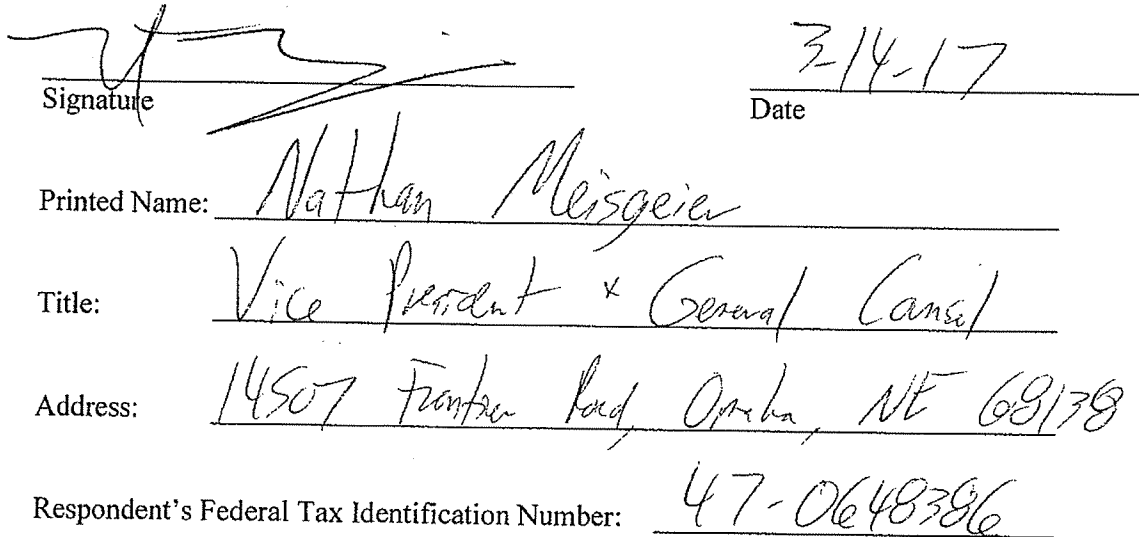 3-14-17
Signature Date
Printed Name: Nathan Meisgeier
Title: Vice President & General Counsel
Address: 14507 Frontier Road, Omaha, NE 68138
Respondent's Federal Tax Identification Number: 47-0648386